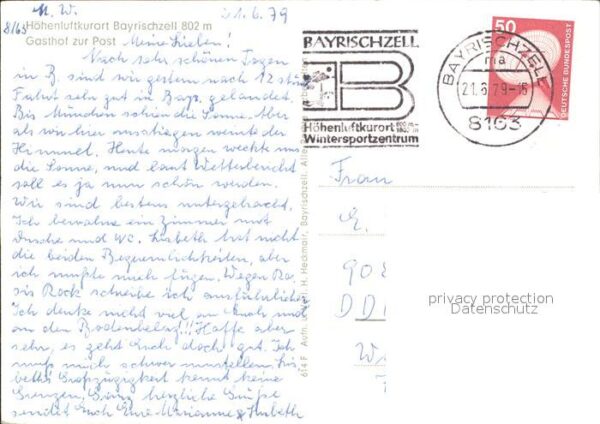 M. W. 21.6.79
8/65
Höhenluftkurort Bayrischzell 802 m
Gasthof zur Post
Meine Lieben!
Nach sehr schönen Tagen
in B. sind wir gestern nach 12 std
Fahrt sehr gut in Bayr. gelandet.
Bis München schien die Sonne. Aber
als wir hier ausstiegen weinte der
Himmel. Heute morgen weckte uns
die Sonne, und laut Wetterbericht
soll es ja nun schön werden.
Wir sind bestens untergebracht.
Ich bewohne ein Zimmer mit
Dusche und WC. Lisbeth hat nicht
die beiden Bequemlichkeiten, aber
ich mußte mich fügen. Wegen
Rock schreibe ich ausführlicher
Ich denke nicht viel an Euch und
an den Bodenbelag!!! Hoffe aber
sehr, es geht Euch doch gut. Ich
muß mich schwer umstellen. Lis
beths Großzügigkeit kennt keine
Grenzen. Ganz herzliche Grüße
sendet Euch Eure Marianne & Lisbeth
614 F Aufn. Verl. H. Heckmair, Bayrischzell.
BAYRISCHZELL
B
Höhenluftkurort 800 m - 1802 m
Wintersportzentrum
BAYRISCHZELL
ma
21.6.79-15
8163
50
DEUTSCHE BUNDESPOST
Frau
E.
90
DD
W
privacy protection
Datenschutz